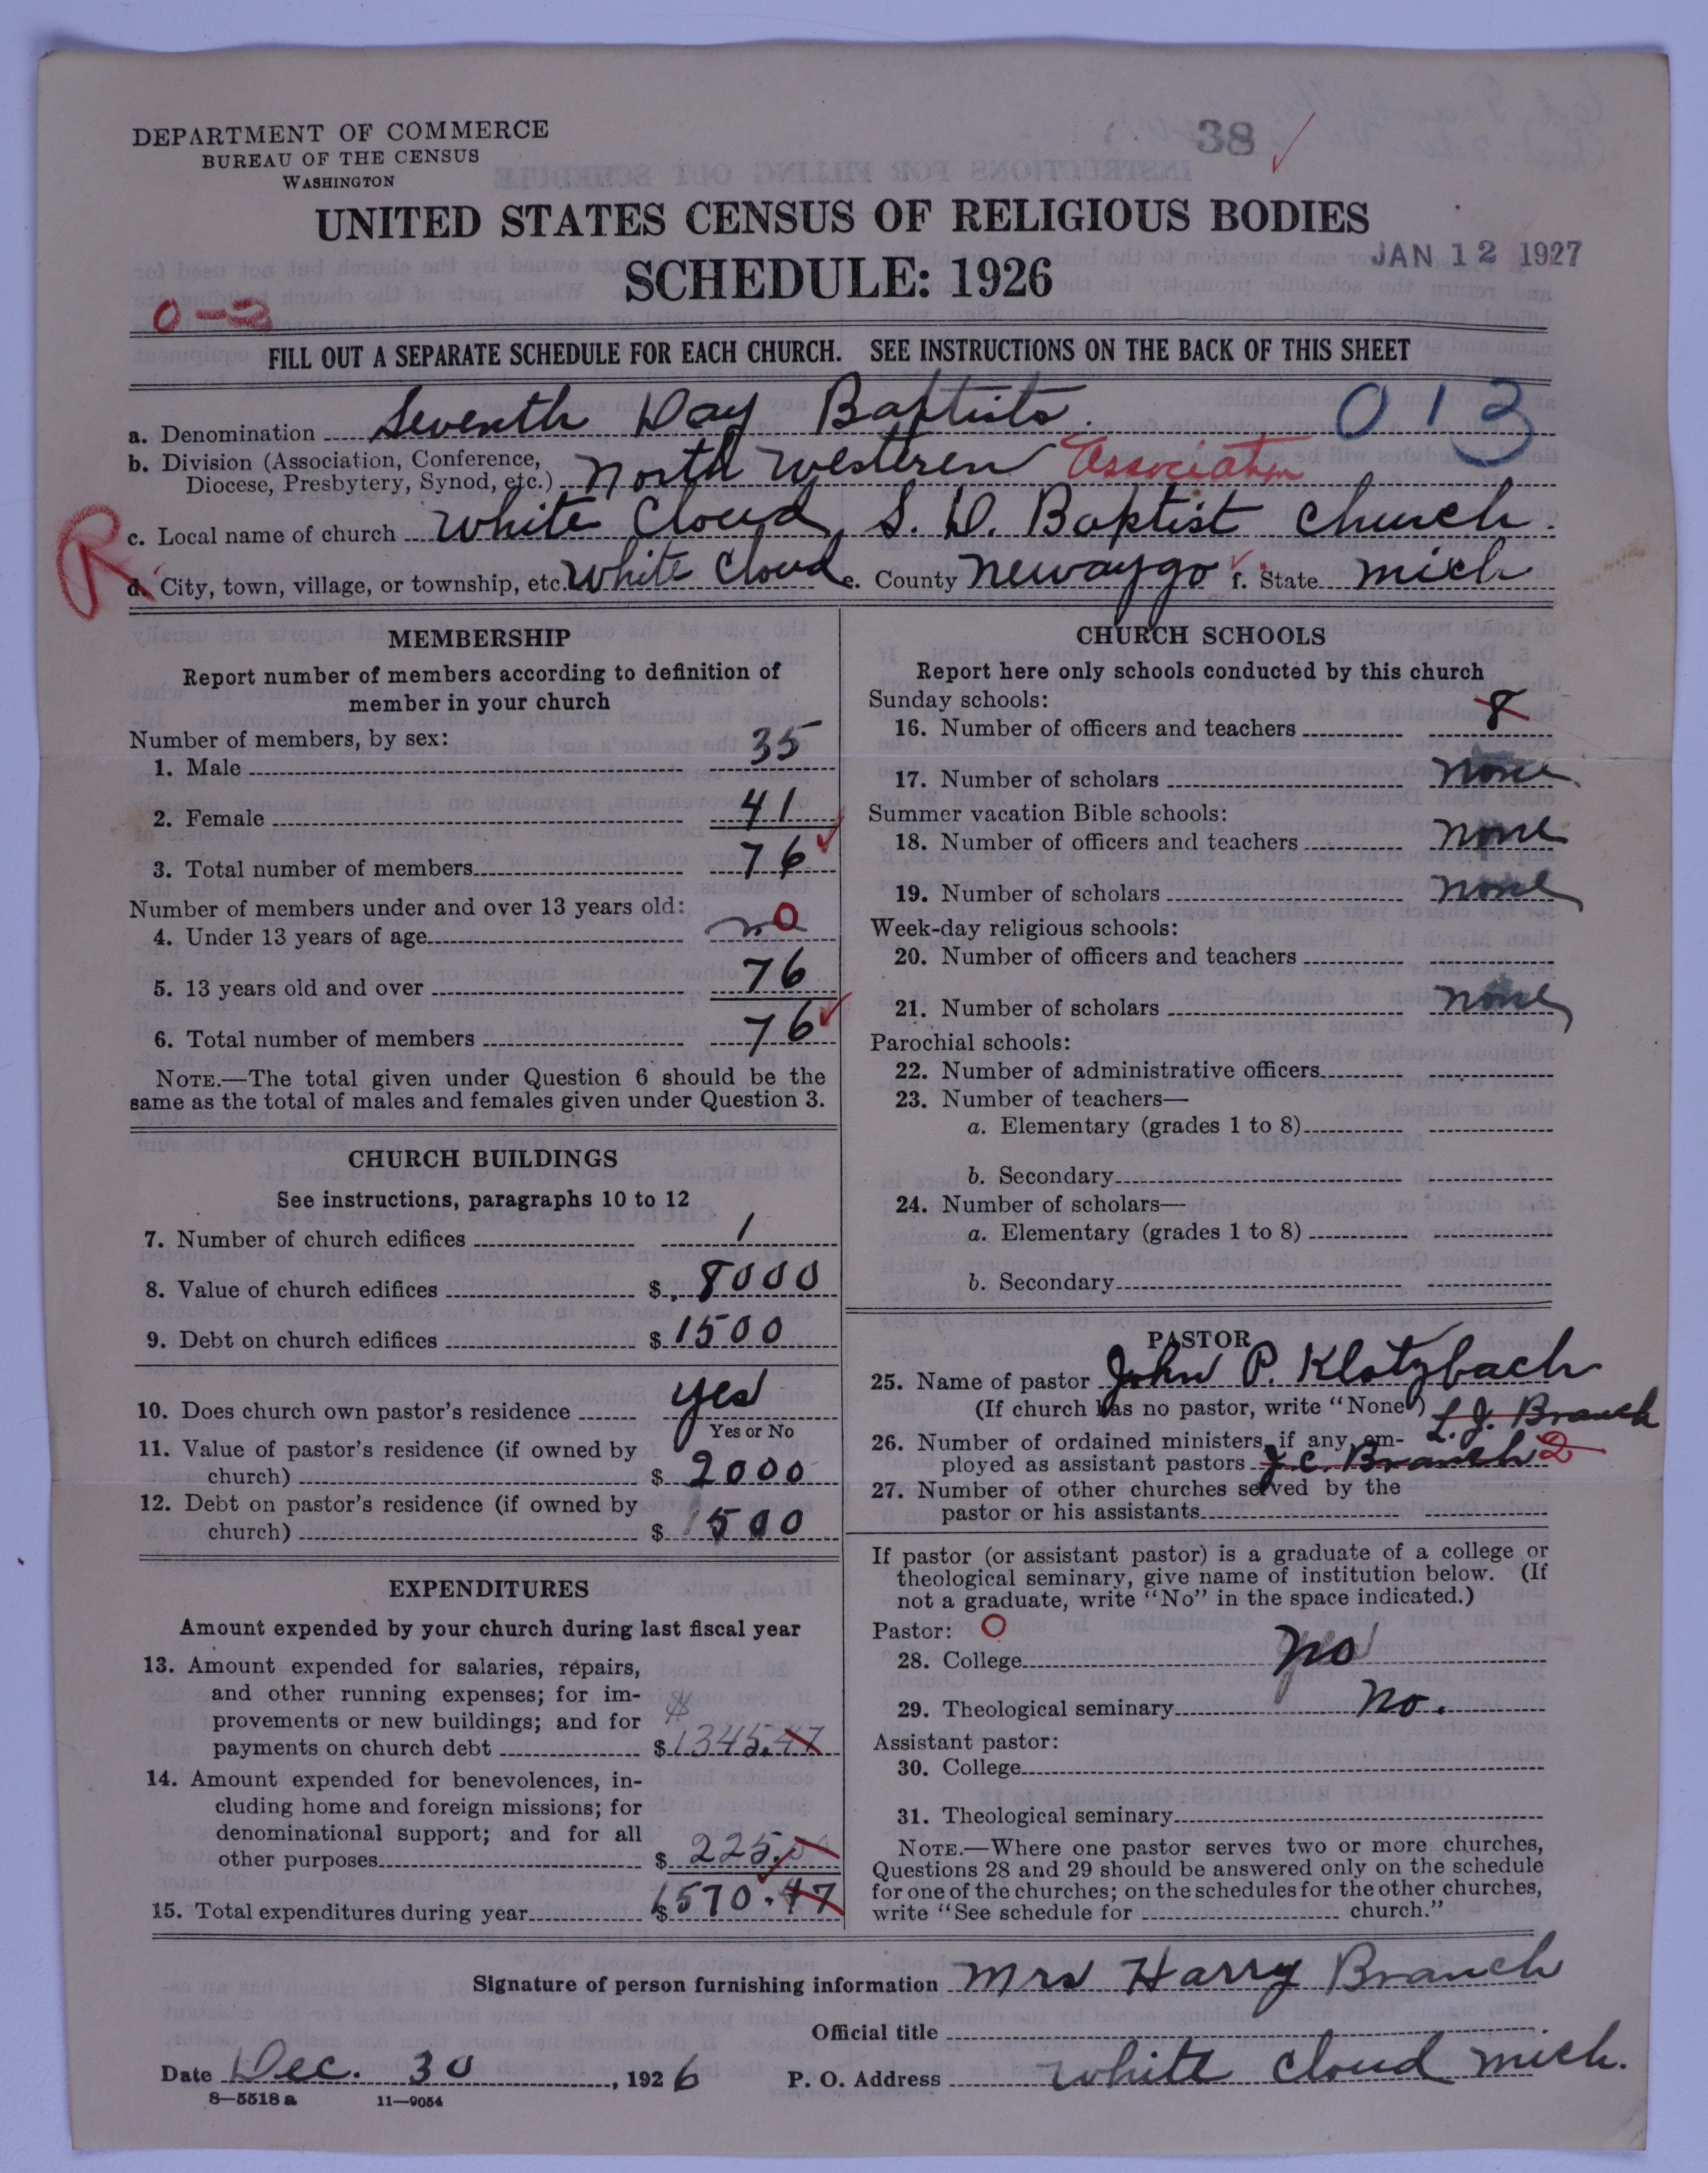 38
DEPARTMENT OF COMMERCE
BUREAU OF THE CENSUS
WASHINGTON
UNITED STATES CENSUS OF RELIGIOUS BODIES
JAN 12 1927
SCHEDULE: 1926
FILL OUT A SEPARATE SCHEDULE FOR EACH CHURCH. SEE INSTRUCTIONS ON THE BACK OF THIS SHEET
a. Denomination Seventh Day Baptists. 013
b. Division (Association, Conference, Diocese, Presbytery, Synod, etc.) North Westeren Association
R
c. Local name of church White Cloud S. D. Baptist Church.
d. City, town, village, or township, etc. White Cloud e. County Newaygo f. State Mich
MEMBERSHIP
Report number of members according to definition of
member in your church
Number of members, by sex:
1. Male 35
2. Female 41
3. Total number of members 76
Number of members under and over 13 years old:
4. Under 13 years of age no 0
5. 13 years old and over 76
6. Total number of members 76
NOTE.—The total given under Question 6 should be the
same as the total of males and females given under Question 3.
CHURCH BUILDINGS
See instructions, paragraphs 10 to 12
7. Number of church edifices 1
8. Value of church edifices $ 8000
9. Debt on church edifices $ 1500
10. Does church own pastor's residence yes
Yes or No
11. Value of pastor's residence (if owned by
church) $ 2000
12. Debt on pastor's residence (if owned by
church) $ 500
EXPENDITURES
Amount expended by your church during last fiscal year
13. Amount expended for salaries, repairs,
and other running expenses; for im-
provements or new buildings; and for
payments on church debt $ 1345.47
14. Amount expended for benevolences, in-
cluding home and foreign missions; for
denominational support; and for all
other purposes $ 225.00
15. Total expenditures during year $ 1570.47
CHURCH SCHOOLS
Report here only schools conducted by this church
Sunday schools:
16. Number of officers and teachers 8
17. Number of scholars none
Summer vacation Bible schools:
18. Number of officers and teachers none
19. Number of scholars none
Week-day religious schools:
20. Number of officers and teachers
21. Number of scholars none
Parochial schools:
22. Number of administrative officers
23. Number of teachers—
a. Elementary (grades 1 to 8)
b. Secondary
24. Number of scholars—
a. Elementary (grades 1 to 8)
b. Secondary
PASTOR
25. Name of pastor John P. Klotzbach
(If church has no pastor, write "None") L. J. Branch
26. Number of ordained ministers, if any, em-
ployed as assistant pastors J. C. Branch 2
27. Number of other churches served by the
pastor or his assistants
If pastor (or assistant pastor) is a graduate of a college or
theological seminary, give name of institution below. (If
not a graduate, write "No" in the space indicated.)
Pastor: O
28. College no
29. Theological seminary no.
Assistant pastor:
30. College
31. Theological seminary
NOTE.—Where one pastor serves two or more churches,
Questions 28 and 29 should be answered only on the schedule
for one of the churches; on the schedules for the other churches,
write "See schedule for church."
Signature of person furnishing information Mrs Harry Branch
Official title
Date Dec. 30, 1926 P. O. Address White Cloud Mich.
8—5518 a 11—9054